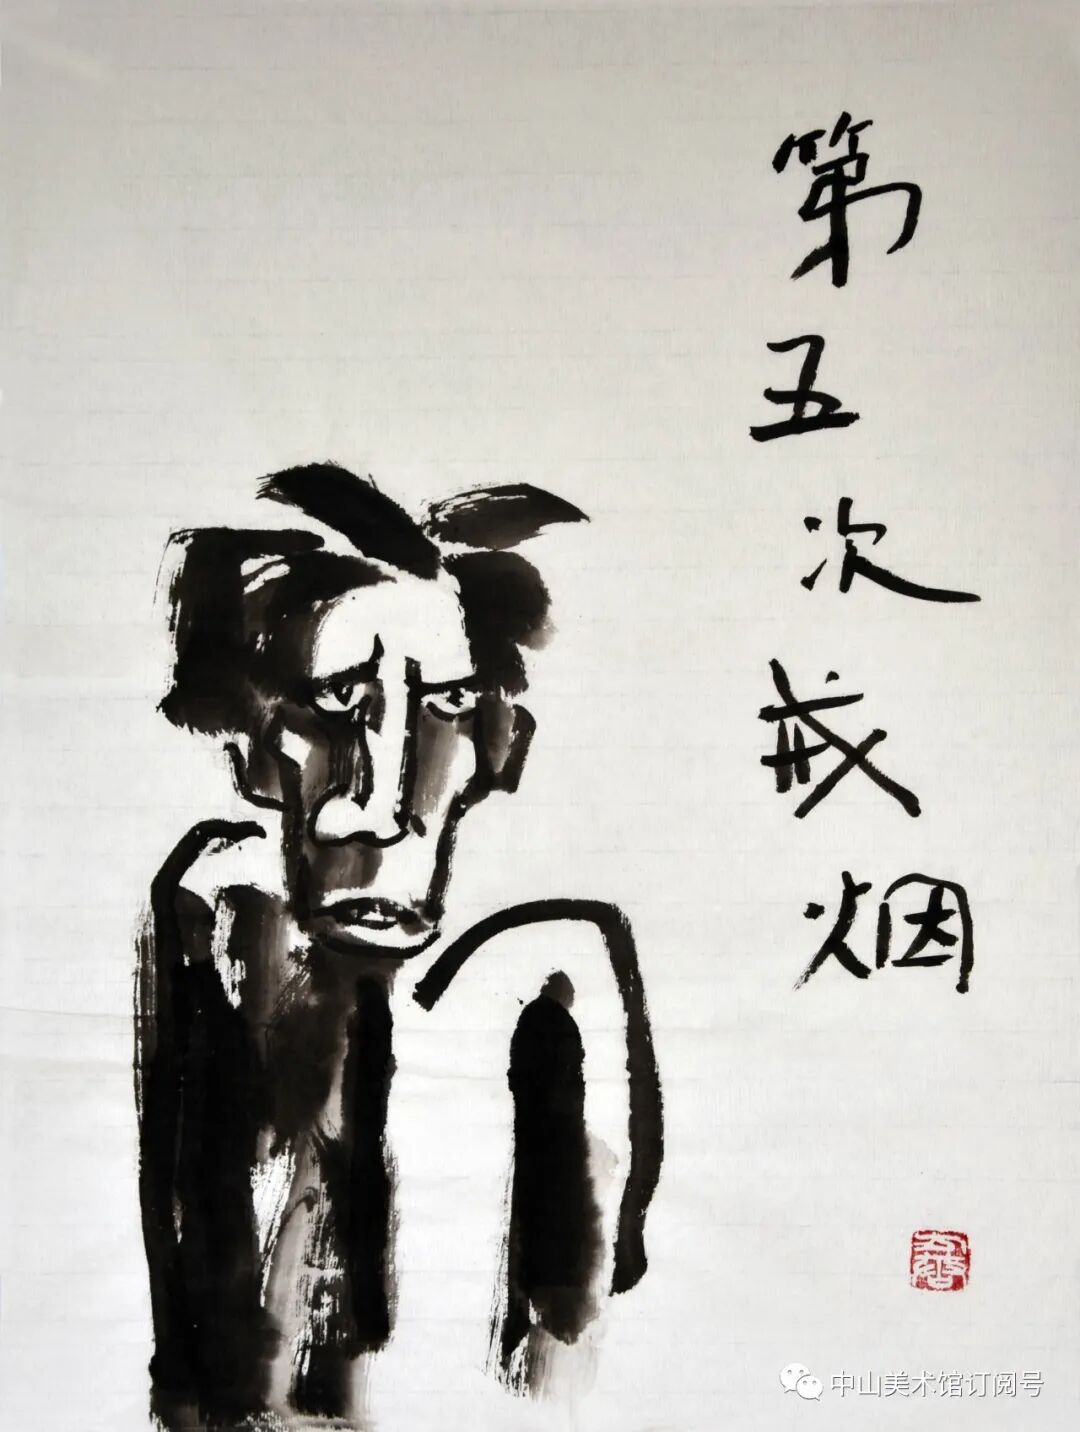 第五次戒烟
中山美术馆订阅号